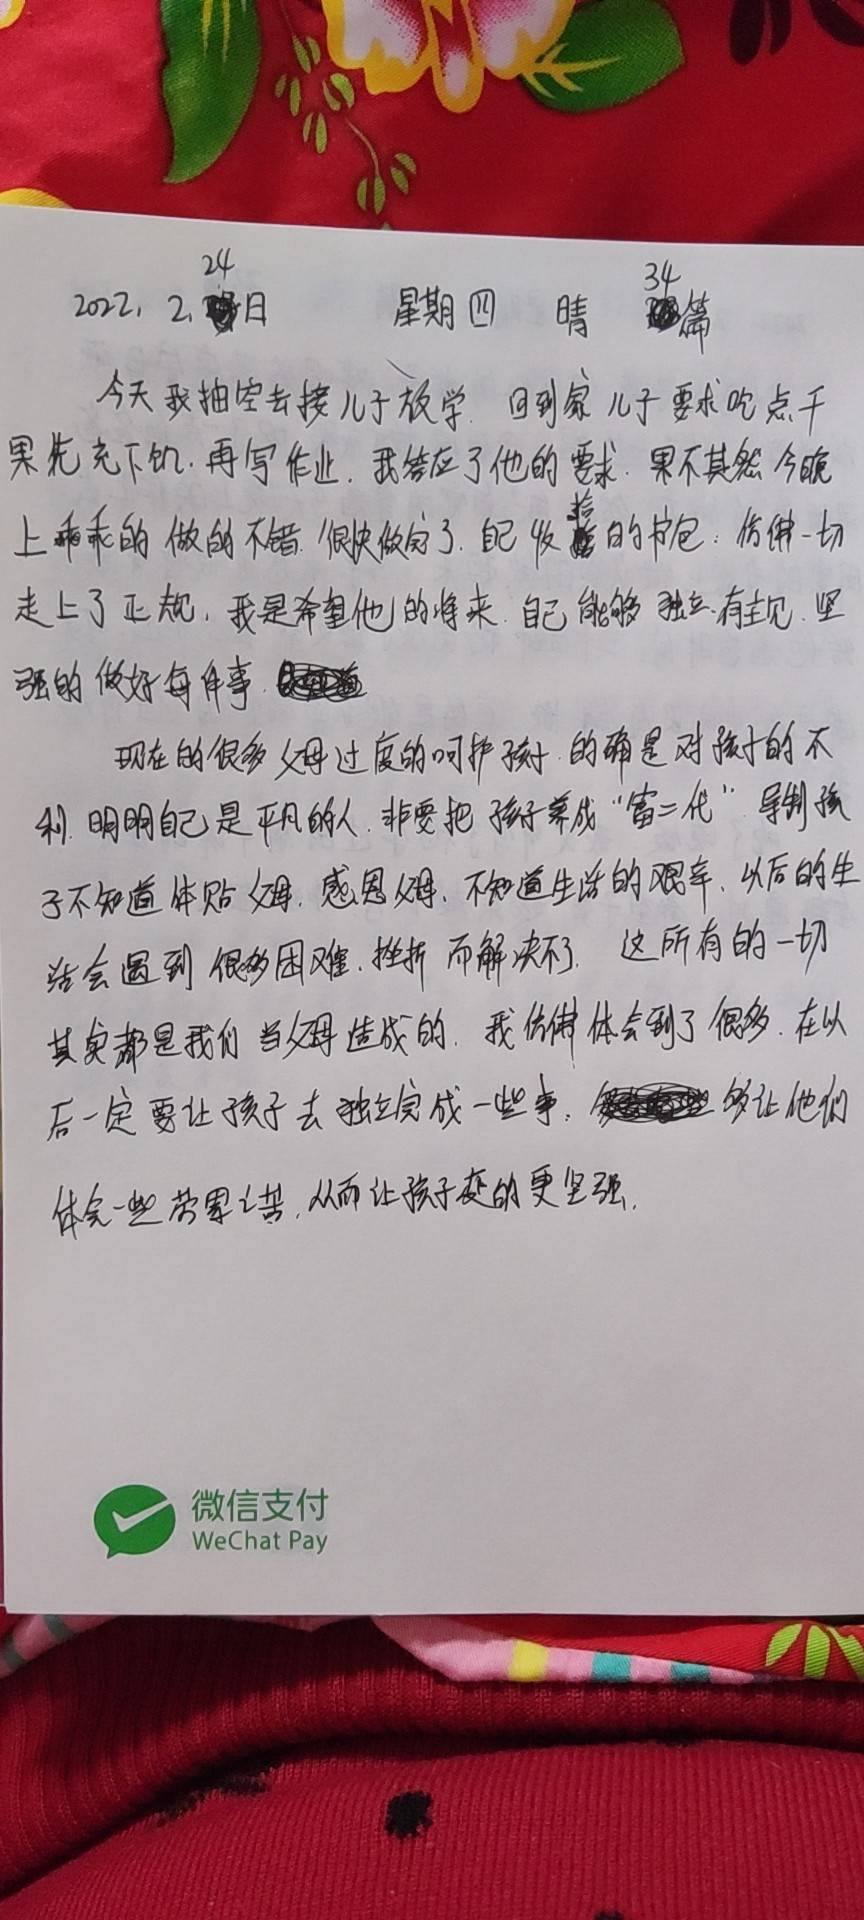 2022. 2. 24日 星期四 晴 34篇
今天我抽空去接儿子放学. 回到家儿子要求吃点干
果先充下饥. 再写作业. 我答应了他的要求. 果不其然今晚
上乖乖的做的不错. 很快做完了. 自己收拾的书包. 仿佛一切
走上了正规. 我是希望他的将来. 自己能够独立. 有主见. 坚
强的做好每件事.
现在的很多父母过度的呵护孩子. 的确是对孩子的不
利. 明明自己是平凡的人. 非要把孩子养成“富二代”. 导制孩
子不知道体贴父母. 感恩父母. 不知道生活的艰辛. 以后的生
活会遇到很多困难. 挫折而解决不了. 这所有的一切
其实都是我们当父母造成的. 我仿佛体会到了很多. 在以
后一定要让孩子去独立完成一些事. 多让他们
体会一些劳累之苦. 从而让孩子变的更坚强.
微信支付
WeChat Pay